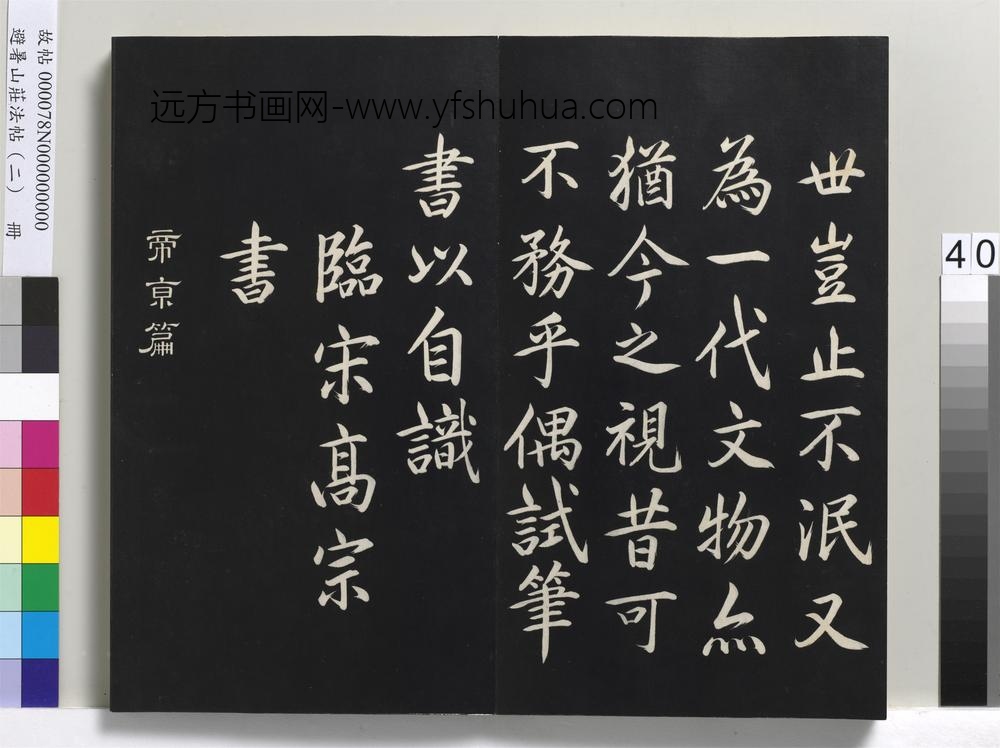 远方书画网-www.yfshuhua.com
世豈止不泯又
為一代文物亦
猶今之視昔可
不務乎偶試筆
書以自識
臨宋高宗
書
帝京篇
故帖 000078N000000000
避暑山莊法帖(二) 冊
40